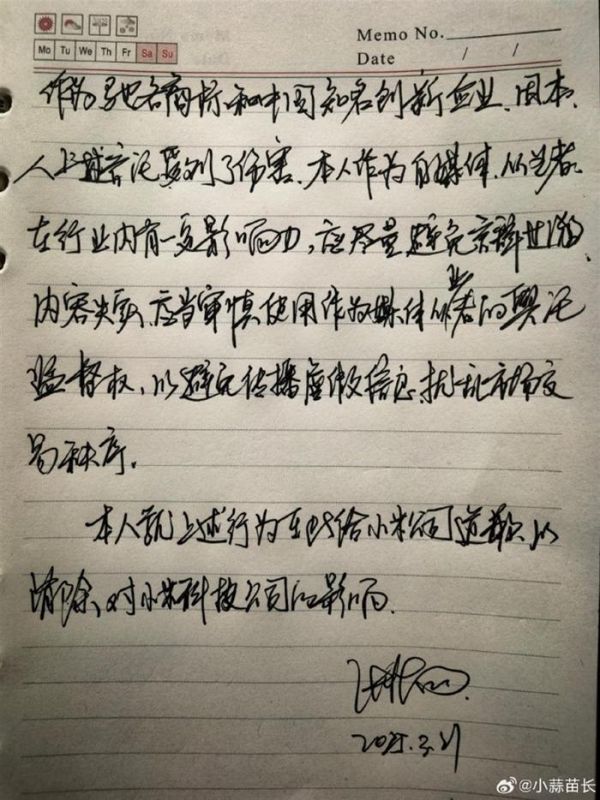 Memo No.
Mo Tu We Th Fr Sa Su
Date / /
作为驰名商标和中国知名创新企业,因本
人上述言论受到了伤害。本人作为自媒体从业者,
在行业内有一定影响力,应尽量避免言辞
内容失实,应当审慎使用作为媒体从业者的舆论
监督权,以避免传播虚假信息,扰乱市场交
易秩序。
本人就上述行为在此给小米公司道歉,以
消除对小米科技公司的影响。
2025.3.21
@小蒜苗长